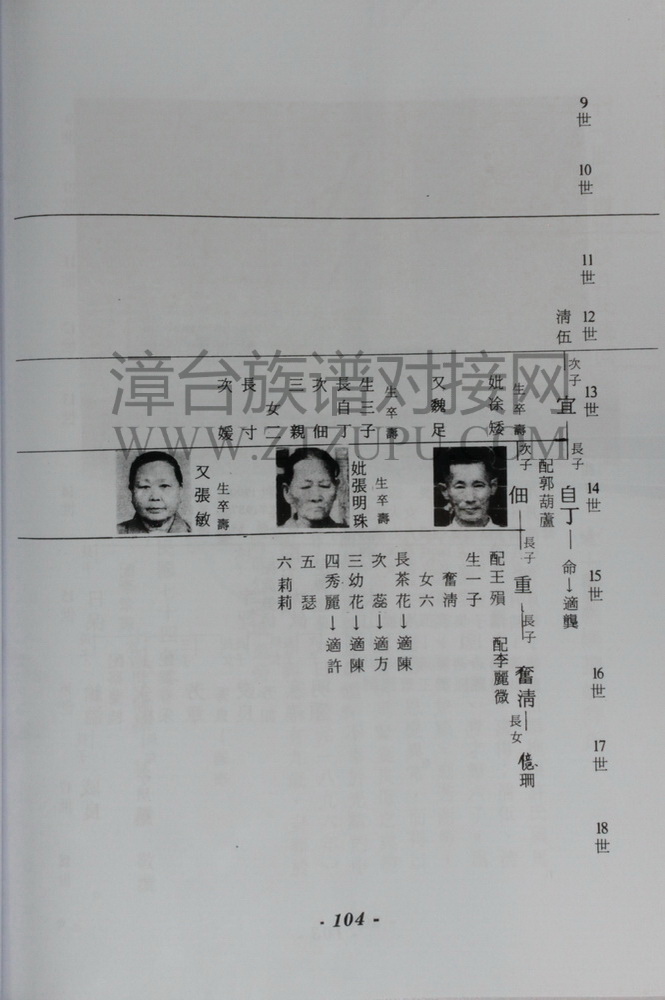 9世
10世
11世
12世
13世
14世
15世
16世
17世
18世
清伍
次子
宜
長子
自丁
命→適龔
配郭葫蘆
生卒壽
妣徐矮
又魏足
生卒壽
生三子
長自丁
次佃
三親
女二
長寸
次媛
次子
佃
長子
重
長子
奮清
長女
億珊
生卒壽
妣張明珠
生卒壽
又張敏
配王殞
生一子
奮清
女六
長茶花→適陳
次蕊→適方
三幼花→適陳
四秀麗→適許
五瑟
六莉莉
配李麗微
漳台族谱对接网
WWW.ZTZUPU.COM
- 104 -